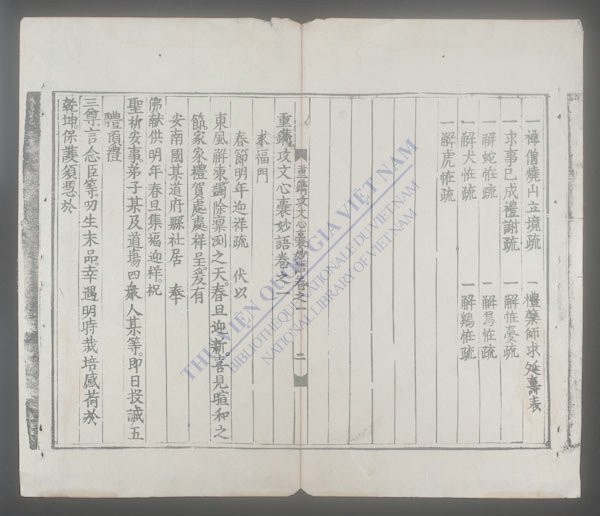 一禪僧燒山立境疏 一禮藥師求延壽表
一求事已成禮謝疏 一解恠憂疏
一解蛇恠疏 一解鳥恠疏
一解犬恠疏 一解鷄恠疏
一解虎恠疏
重鐫攻文心囊妙語卷之一 二
重鐫攻文心囊妙語卷之一
求福門
春節明年迎祥疏 伏以
東風解凍蠲除栗冽之天春旦迎新喜見暄和之
節家家禮賀處處祥呈爰有
安南國某道府縣社居 奉
佛獻供明年春旦集福迎祥祝
聖祈安事弟子某及道塲四衆人某等即日投誠五
體頂禮
三尊言念臣等叨生末品幸遇明時栽培感荷於
乾坤保護須憑於
THƯ VIỆN QUỐC GIA VIỆT NAM
BIBLIOTHÈQUE NATIONALE DU VIETNAM
NATIONAL LIBRARY OF VIETNAM